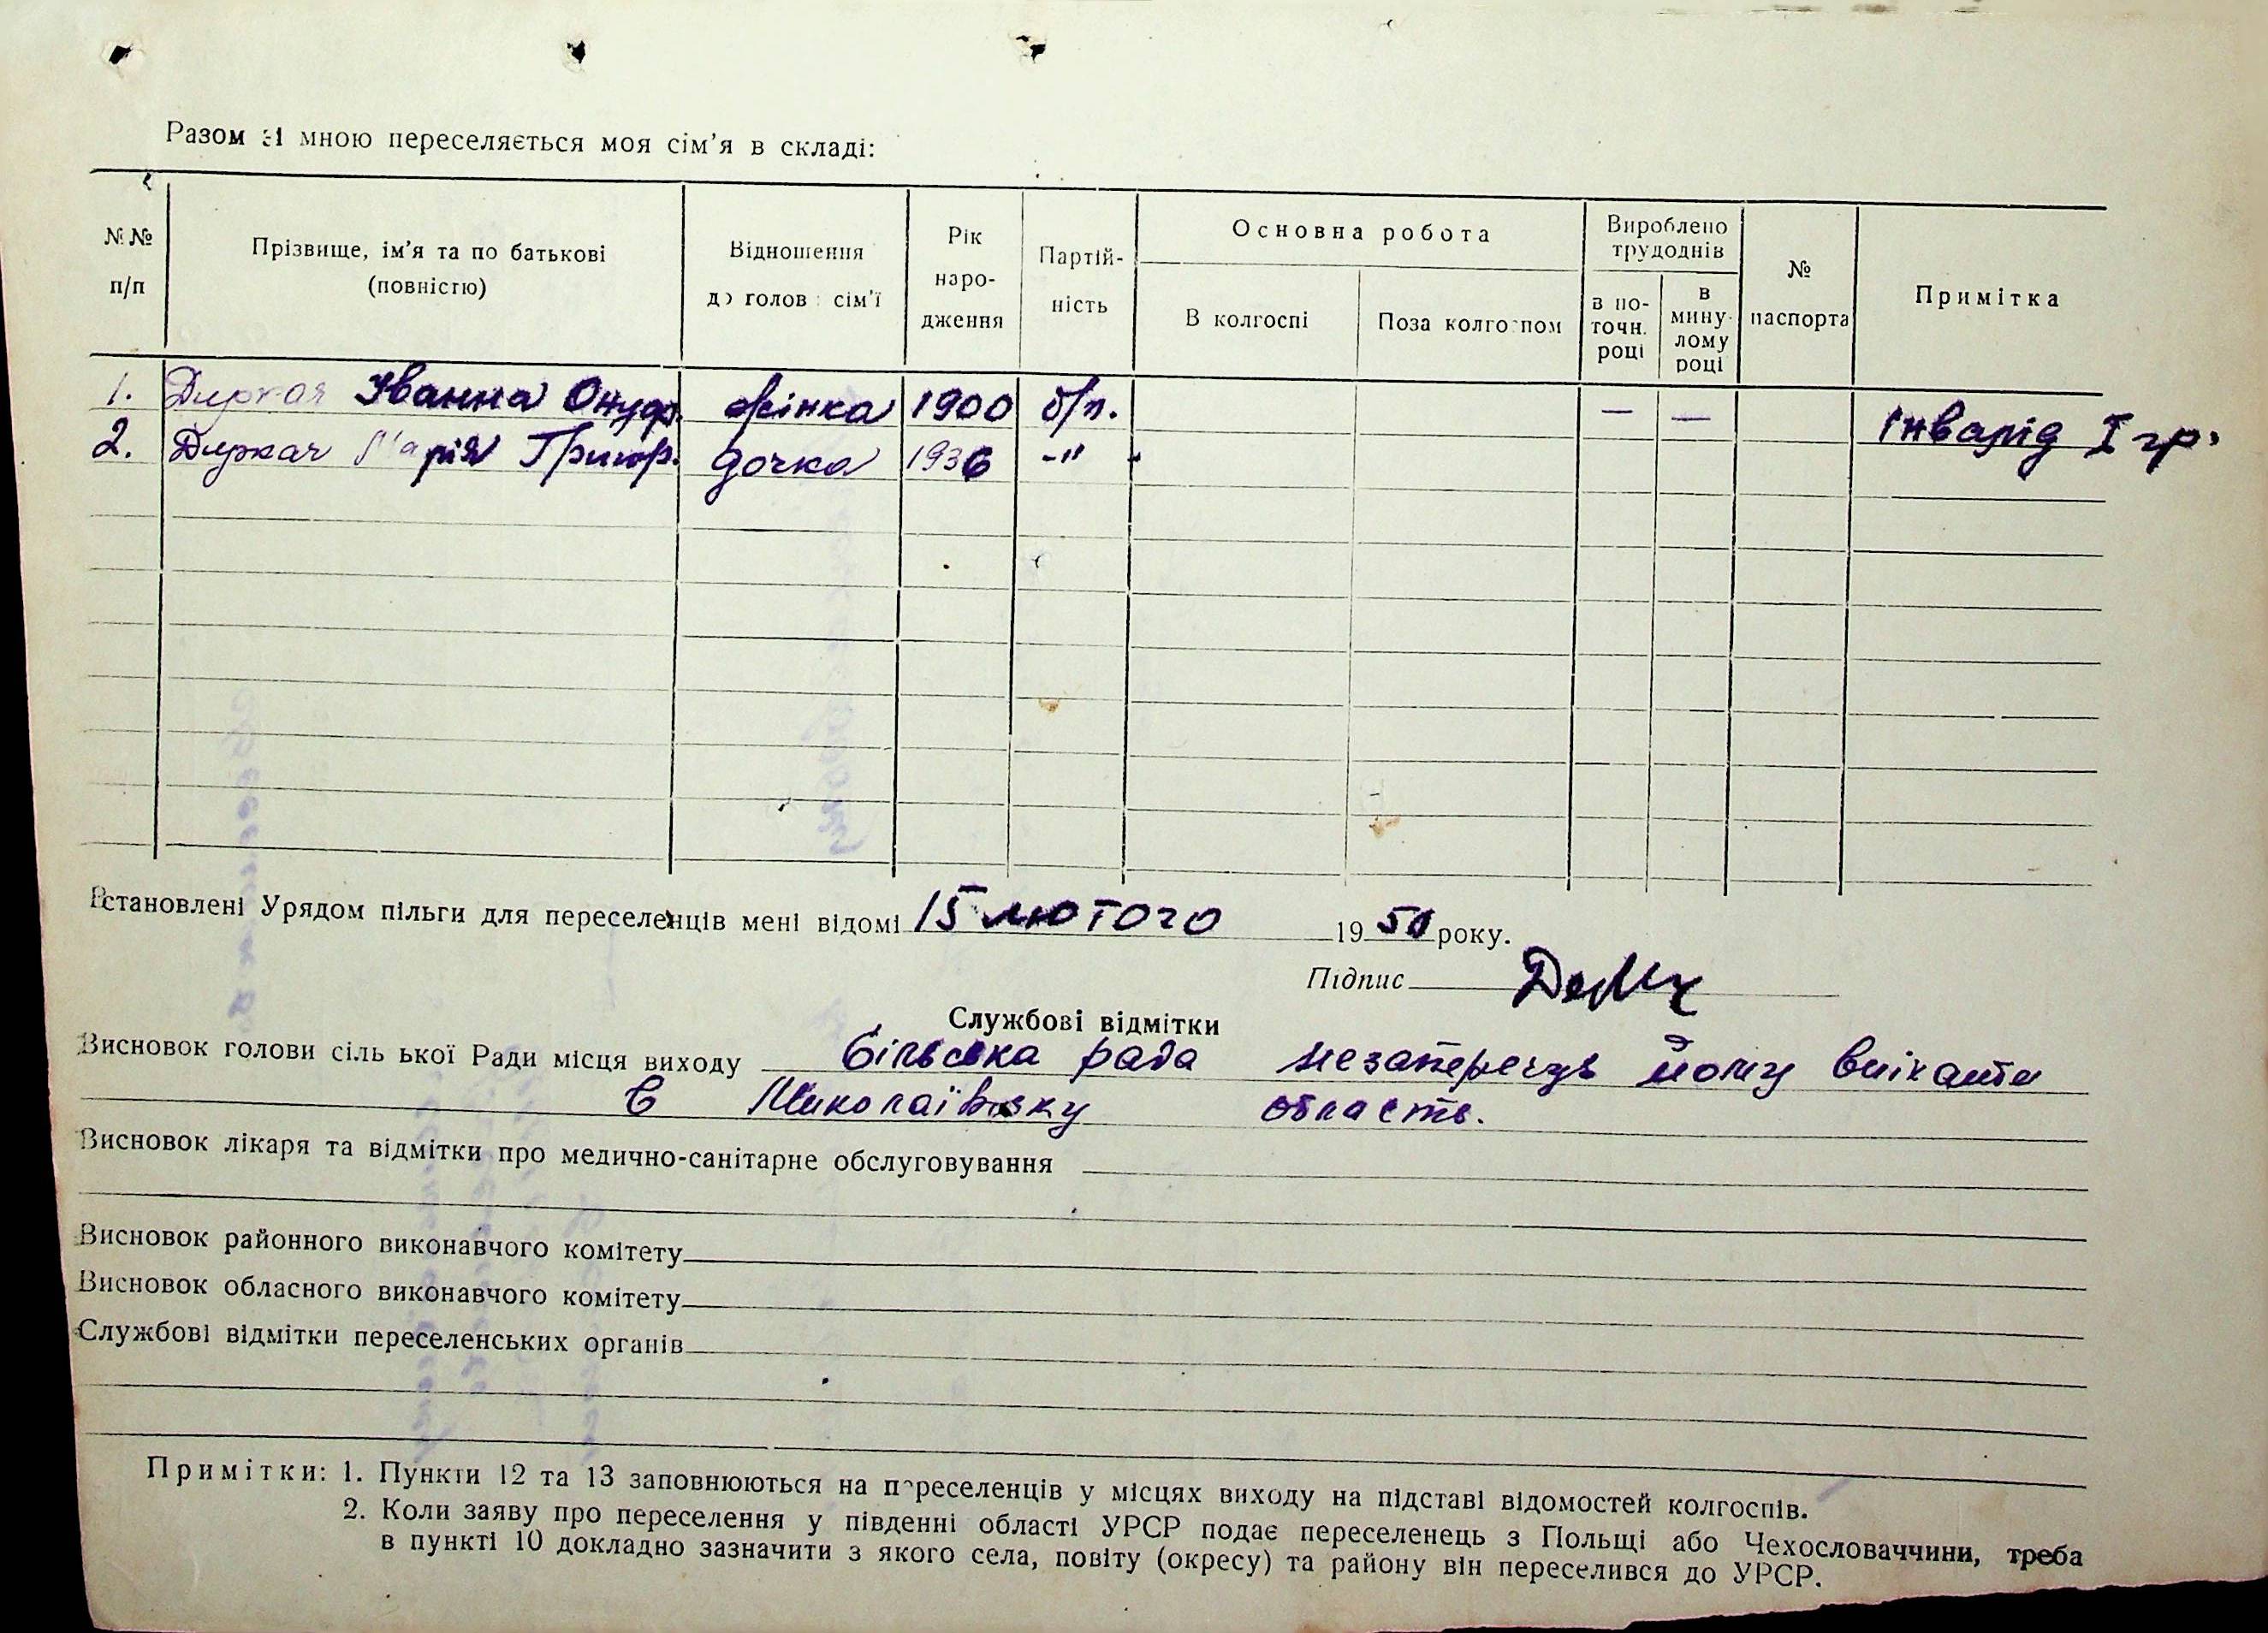 Разом зі мною переселяється моя сім'я в складі:
№№ п/п
Прізвище, ім'я та по батькові (повністю)
Відношення до голови сім'ї
Рік народження
Партійність
Основна робота
В колгоспі
Поза колгоспом
Вироблено трудоднів
в поточн. році
в минулому році
№ паспорта
Примітка
1. Держач Іванна Онуф. жінка 1900 б/п. — — Інвалід І гр.
2. Держач Марія Григор. дочка 1936 -"-
Встановлені Урядом пільги для переселенців мені відомі 15 лютого 1950 року.
Підпис
Службові відмітки
Висновок голови сільської Ради місця виходу сільська рада незаперечує йому виїхати
в Миколаївську область.
Висновок лікаря та відмітки про медично-санітарне обслуговування
Висновок районного виконавчого комітету
Висновок обласного виконавчого комітету
Службові відмітки переселенських органів
Примітки: 1. Пункти 12 та 13 заповнюються на переселенців у місцях виходу на підставі відомостей колгоспів.
2. Коли заяву про переселення у південні області УРСР подає переселенець з Польщі або Чехословаччини, треба
в пункті 10 докладно зазначити з якого села, повіту (окресу) та району він переселився до УРСР.